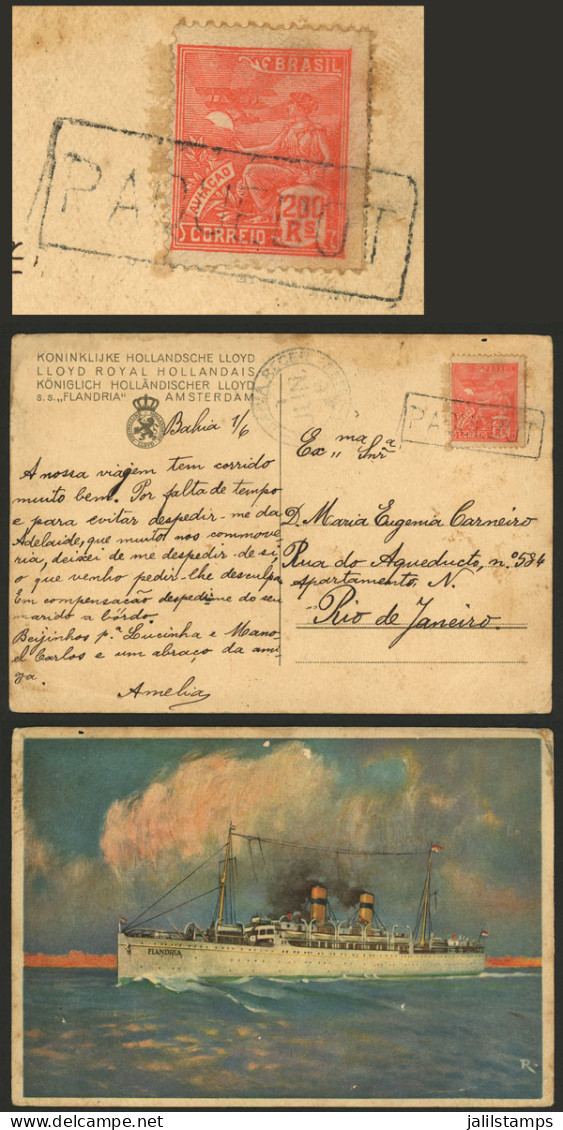 BRASIL
AVIAÇÃO
200
Rs
CORREIO
PAQUEBOT
KONINKLIJKE HOLLANDSCHE LLOYD
LLOYD ROYAL HOLLANDAIS
KÖNIGLICH HOLLÄNDISCHER LLOYD
s.s. „FLANDRIA" AMSTERDAM
Bahia 1/6
A nossa viagem tem corrido
muito bem. Por falta de tempo
e para evitar despedir-me da
Adelaide, que muito nos commove-
ria, deixei de me despedir de si,
o que venho pedir-lhe desculpa.
Em compensação despedi-me do seu
marido a bórdo.
Beijinhos p.ª Lucinha e Mano-
el Carlos e um abraço da ami-
ga.
Amelia
BRASIL
CORREIO
Rs
PAQUEBOT
Ex.ma Snr.a
D. Maria Eugenia Carneiro
Rua do Aqueducto, nº 584
Apartamento, N.
Rio de Janeiro.
FLANDRIA
R
www.delcampe.net
jalilstamps